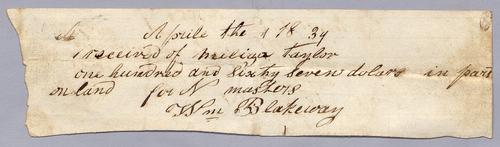 Aprile the 1 1834
received of meliga Taylor
one hundred and sixty seven dollars in part
on land for N masters
Wm Blakeway